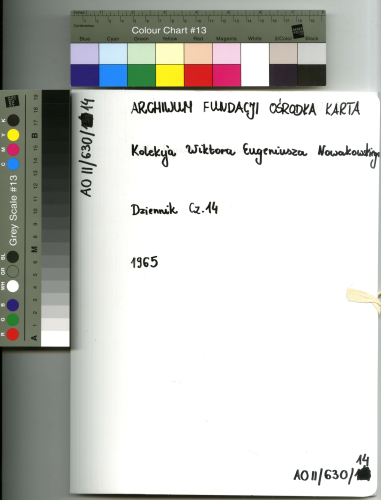 Colour Chart #13
Blue Cyan Green Yellow Red Magenta White 3/Color Black
Grey Scale #13
C M Y K
R G B WH GR BL
A 1 2 3 4 5 6 M 8 9 10 11 12 13 14 15 B 17 18 19
AO II/630/14
ARCHIWUM FUNDACJI OŚRODKA KARTA
Kolekcja Wiktora Eugeniusza Nowakowskiego
Dziennik Cz. 14
1965
14
AO II/630/